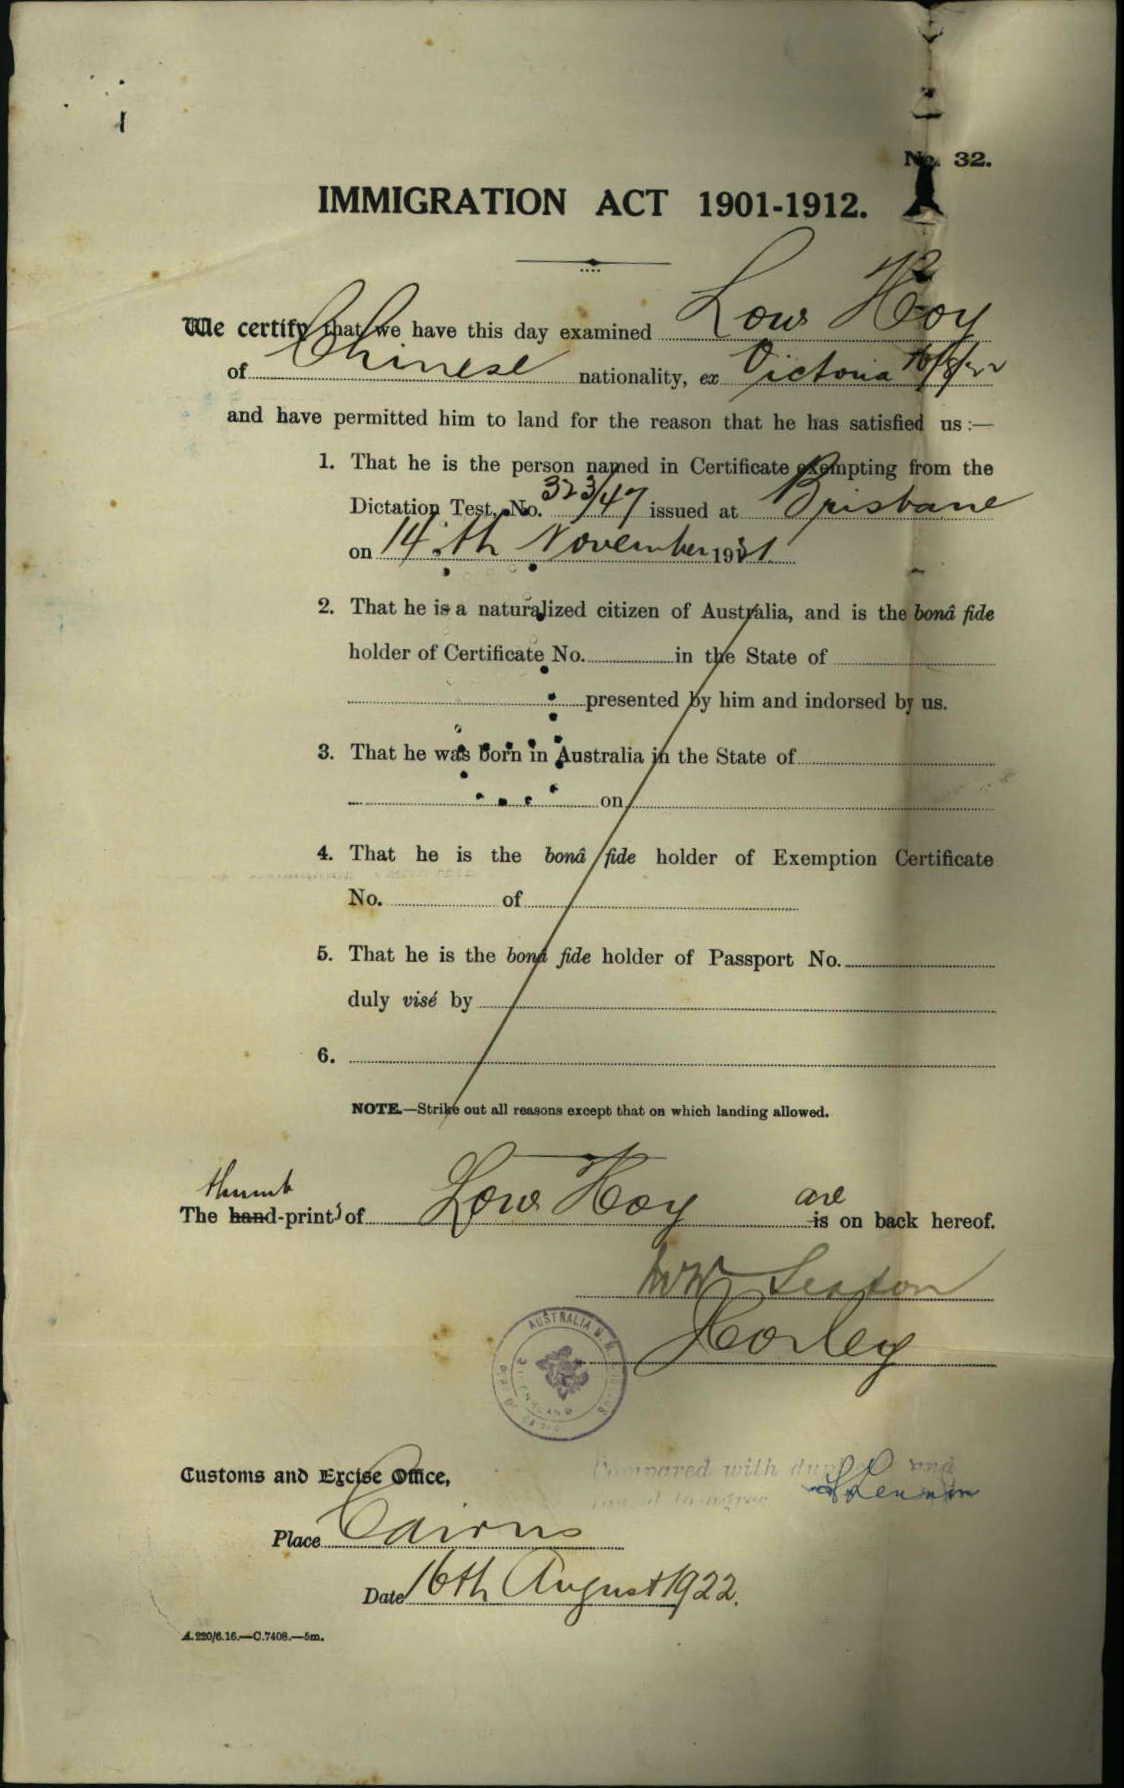 No. 32.
IMMIGRATION ACT 1901-1912.
We certify that we have this day examined Low Hoy
of Chinese nationality, ex Victoria 16/8/22
and have permitted him to land for the reason that he has satisfied us :—
1. That he is the person named in Certificate exempting from the
Dictation Test, No. 323/47 issued at Brisbane
on 14th November 1921
2. That he is a naturalized citizen of Australia, and is the bonâ fide
holder of Certificate No. in the State of
presented by him and indorsed by us.
3. That he was born in Australia in the State of
on
4. That he is the bonâ fide holder of Exemption Certificate
No. of
5. That he is the bonâ fide holder of Passport No.
duly visé by
6.
NOTE.—Strike out all reasons except that on which landing allowed.
thumb are
The hand-prints of Low Hoy is on back hereof.
Seaton
Horley
AUSTRALIA
Compared with and
Customs and Excise Office,
Place Cairns
Date 16th August 1922.
A.220/6.16.—C.7408.—5m.